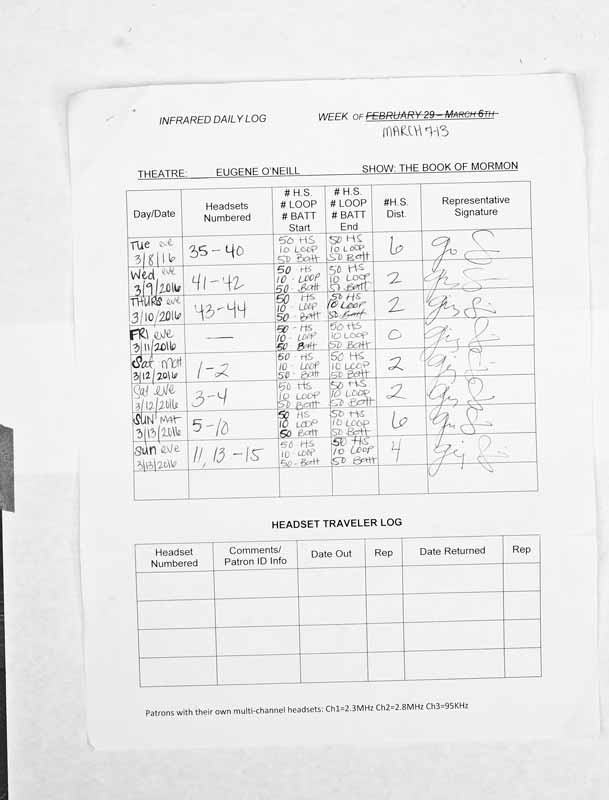 INFRARED DAILY LOG WEEK OF FEBRUARY 29 – MARCH 6TH
MARCH 7-13
THEATRE: EUGENE O'NEILL SHOW: THE BOOK OF MORMON
Day/Date Headsets Numbered # H.S. # LOOP # BATT Start # H.S. # LOOP # BATT End #H.S. Dist. Representative Signature
Tue eve 3/8/16 35-40 50 HS 10 LOOP 50 Batt 50 HS 10 LOOP 50 Batt 6
Wed eve 3/9/2016 41-42 50 HS 10 - LOOP 50 - Batt 50 HS 10 LOOP 50 Batt 2
THURS eve 3/10/2016 43-44 50 - HS 10 - LOOP 50 - Batt 50 HS 10 LOOP 50 Batt 2
FRI eve 3/11/2016 — 50 - HS 10 - LOOP 50 Batt 50 HS 10 LOOP 50 Batt 0
Sat Matt 3/12/2016 1-2 50 - HS 10 - LOOP 50 - Batt 50 HS 10 LOOP 50 Batt 2
Sat eve 3/12/2016 3-4 50 HS 10 LOOP 50 Batt 50 HS 10 LOOP 50 Batt 2
SUN MAT 3/13/2016 5-10 50 HS 10 LOOP 50 Batt 50 HS 10 LOOP 50 Batt 6
Sun eve 3/13/2016 11, 13-15 50 HS 10 - LOOP 50 - Batt 50 HS 10 LOOP 50 Batt 4
HEADSET TRAVELER LOG
Headset Numbered Comments/ Patron ID Info Date Out Rep Date Returned Rep
Patrons with their own multi-channel headsets: Ch1=2.3MHz Ch2=2.8MHz Ch3=95KHz